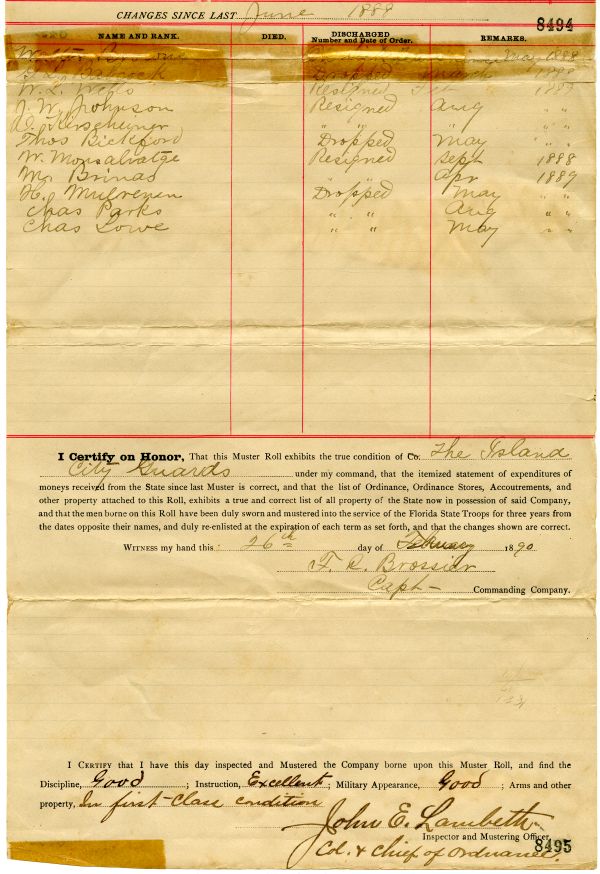 CHANGES SINCE LAST June 1888
8494
NAME AND RANK. DIED. DISCHARGED Number and Date of Order. REMARKS.
May 1888
Dropped March
W. L. Wells Resigned 1889
J. W. Johnson Resigned Aug " "
" " " "
Thos Bickford Dropped May " "
W. Monsalvatge Resigned Sept 1888
M. Brinas " " Apr 1889
H. Mulrenen Dropped May " "
Chas Parks " " Aug " "
Chas Lowe " " May " "
I Certify on Honor, That this Muster Roll exhibits the true condition of Co. The Island
City Guards under my command, that the itemized statement of expenditures of
moneys received from the State since last Muster is correct, and that the list of Ordinance, Ordinance Stores, Accoutrements, and
other property attached to this Roll, exhibits a true and correct list of all property of the State now in possession of said Company,
and that the men borne on this Roll have been duly sworn and mustered into the service of the Florida State Troops for three years from
the dates opposite their names, and duly re-enlisted at the expiration of each term as set forth, and that the changes shown are correct.
WITNESS my hand this 26th day of February 1890
F. C. Brossier
Capt Commanding Company.
I CERTIFY that I have this day inspected and Mustered the Company borne upon this Muster Roll, and find the
Discipline, Good ; Instruction, Excellent ; Military Appearance, Good ; Arms and other
property, In first-class condition
John E. Lambeth
Inspector and Mustering Officer.
Col. & Chief of Ordnance.
8495